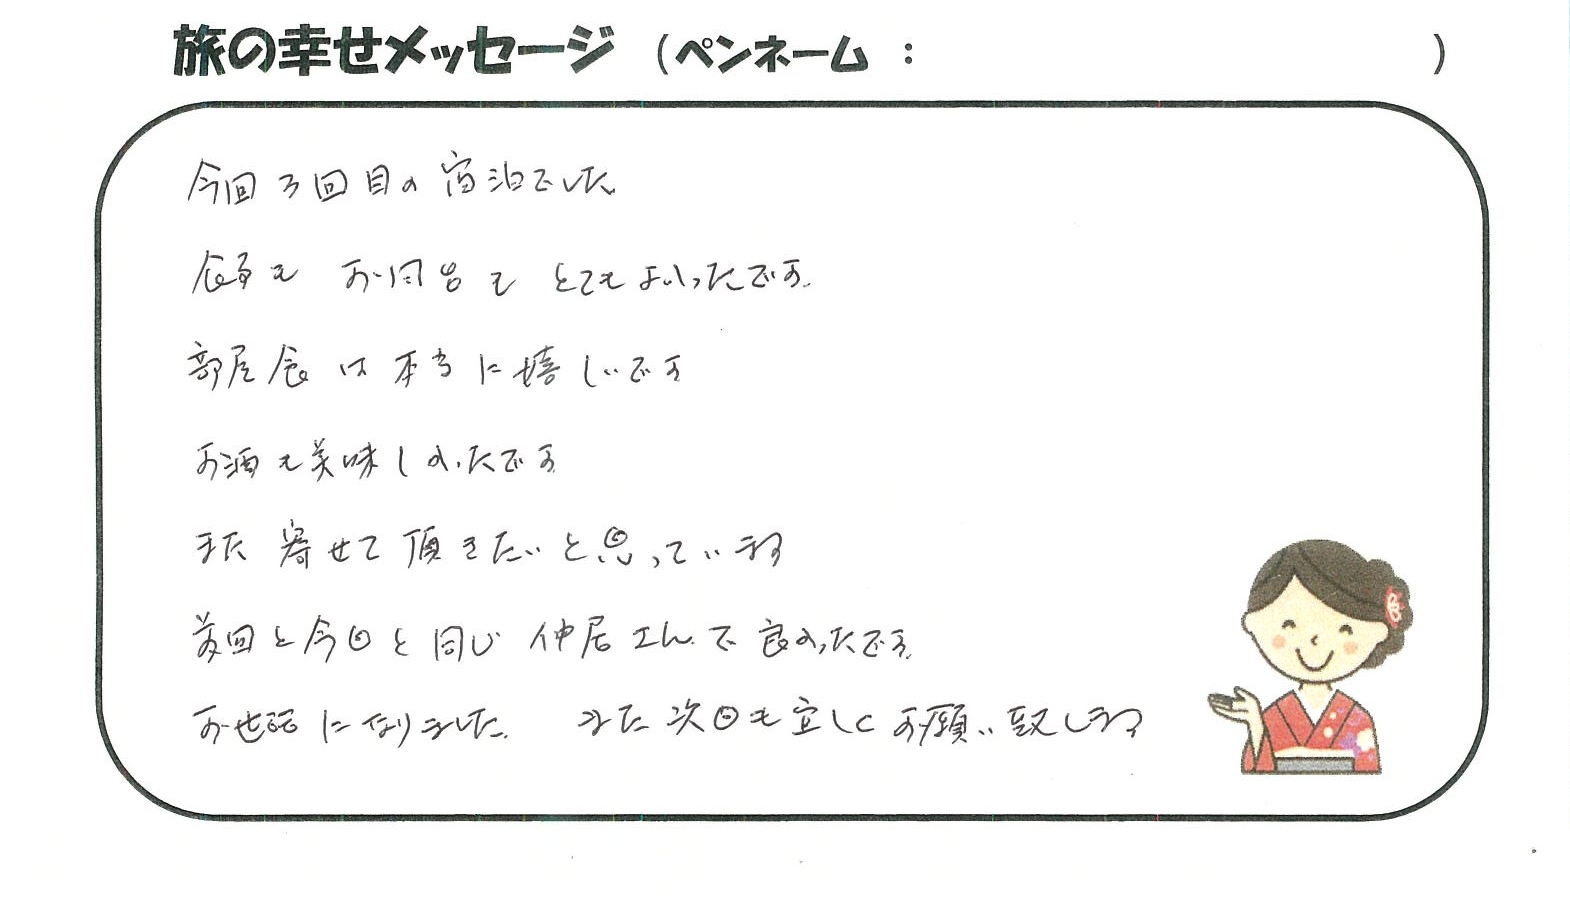 旅の幸せメッセージ (ペンネーム : )
今回3回目の宿泊でした
食事も お風呂も とてもよかったです。
部屋食は本当に嬉しいです
お酒も美味しかったです
また 寄せて頂きたいと思っています
前回と今回と同じ 仲居さんで良かったです。
お世話になりました。 また次回も宜しくお願い致します